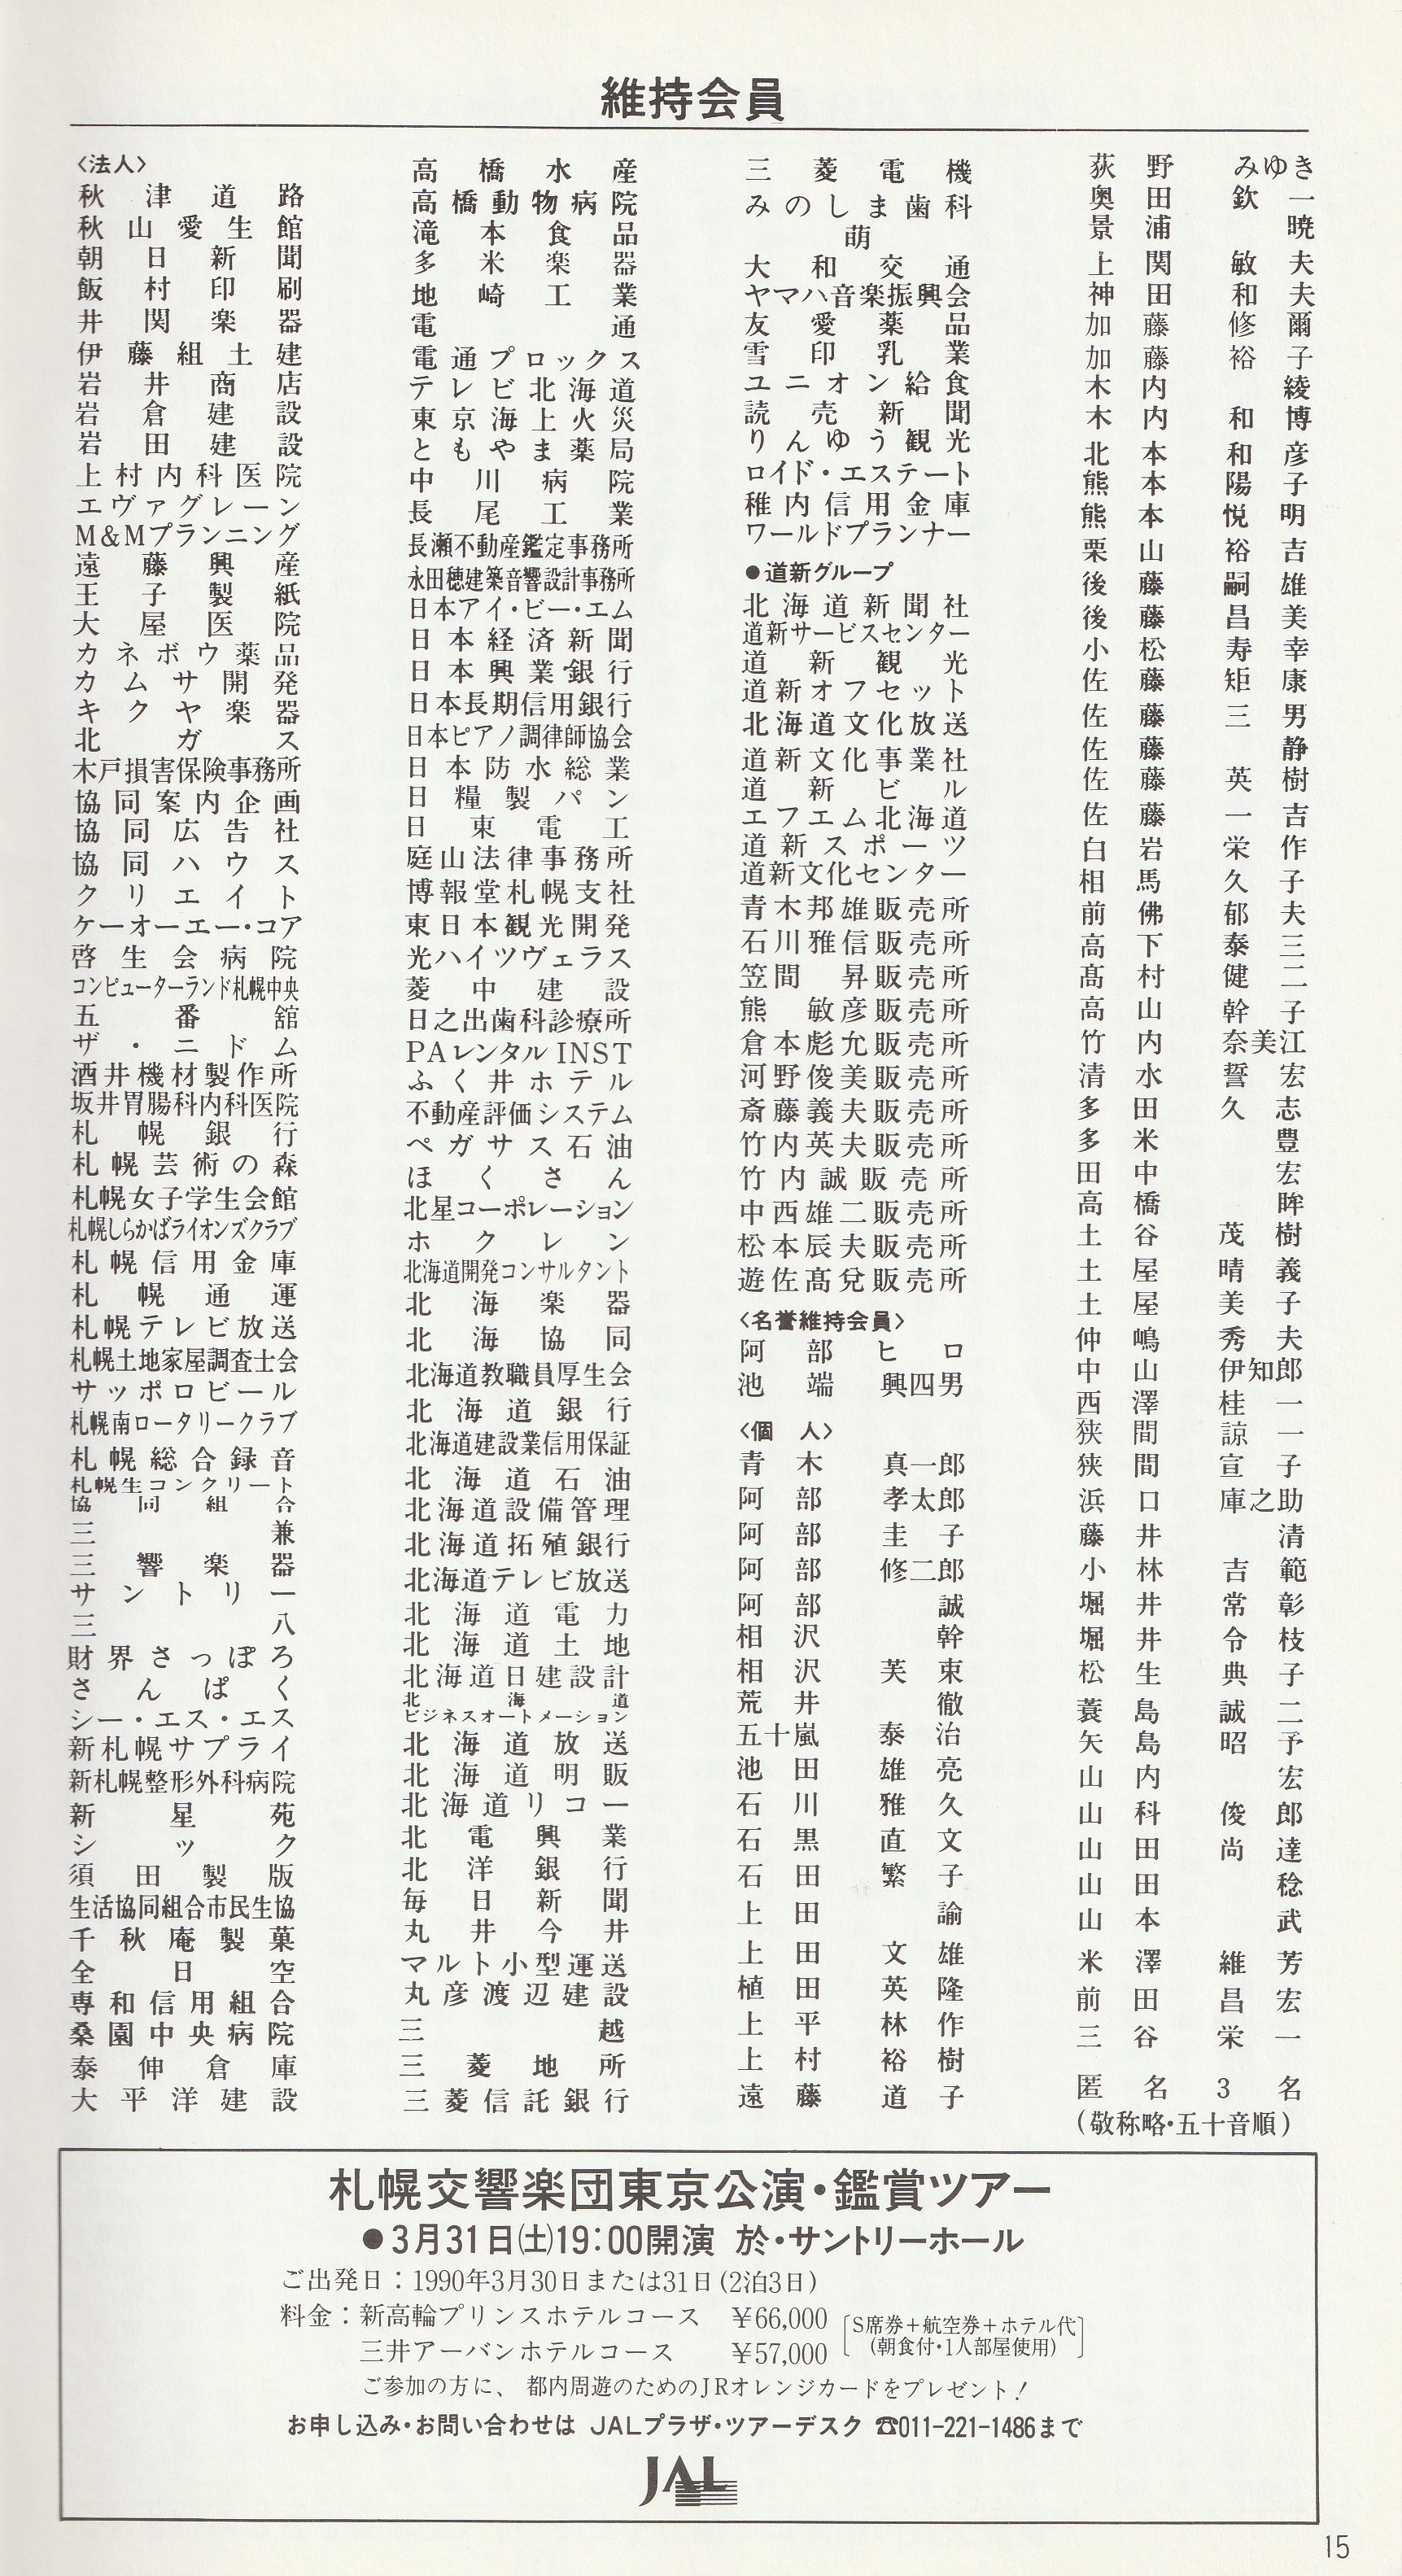 維持会員
〈法人〉
秋津道路
秋山愛生館
朝日新聞
飯村印刷
井関楽器
伊藤組土建
岩井商店
岩倉建設
岩田建設
上村内科医院
エヴァグレーン
M&Mプランニング
遠藤興産
王子製紙
大屋医院
カネボウ薬品
カムサ開発
キクヤ楽器
北ガス
木戸損害保険事務所
協同案内企画
協同広告社
協同ハウス
クリエイト
ケーオーエー・コア
啓生会病院
コンピューターランド札幌中央
五番舘
ザ・ニドム
酒井機材製作所
坂井胃腸科内科医院
札幌銀行
札幌芸術の森
札幌女子学生会館
札幌しらかばライオンズクラブ
札幌信用金庫
札幌通運
札幌テレビ放送
札幌土地家屋調査士会
サッポロビール
札幌南ロータリークラブ
札幌総合録音
札幌生コンクリート
協同組合
三兼
三響楽器
サントリー
三八
財界さっぽろ
さんぱく
シー・エス・エス
新札幌サプライ
新札幌整形外科病院
新星苑
シック
須田製版
生活協同組合市民生協
千秋庵製菓
全日空
専和信用組合
桑園中央病院
泰伸倉庫
大平洋建設
高橋水産
高橋動物病院
滝本食品
多米楽器
地崎工業
電通
電通プロックス
テレビ北海道
東京海上火災
ともやま薬局
中川病院
長尾工業
長瀬不動産鑑定事務所
永田穂建築音響設計事務所
日本アイ・ビー・エム
日本経済新聞
日本興業銀行
日本長期信用銀行
日本ピアノ調律師協会
日本防水総業
日糧製パン
日東電工
庭山法律事務所
博報堂札幌支社
東日本観光開発
光ハイツヴェラス
菱中建設
日之出歯科診療所
PAレンタルINST
ふく井ホテル
不動産評価システム
ペガサス石油
ほくさん
北星コーポレーション
ホクレン
北海道開発コンサルタント
北海楽器
北海協同
北海道教職員厚生会
北海道銀行
北海道建設業信用保証
北海道石油
北海道設備管理
北海道拓殖銀行
北海道テレビ放送
北海道電力
北海道土地
北海道日建設計
北海道
ビジネスオートメーション
北海道放送
北海道明販
北海道リコー
北電興業
北洋銀行
毎日新聞
丸井今井
マルト小型運送
丸彦渡辺建設
三越
三菱地所
三菱信託銀行
三菱電機
みのしま歯科
萌
大和交通
ヤマハ音楽振興会
友愛薬品
雪印乳業
ユニオン給食
読売新聞
りんゆう観光
ロイド・エステート
稚内信用金庫
ワールドプランナー
●道新グループ
北海道新聞社
道新サービスセンター
道新観光
道新オフセット
北海道文化放送
道新文化事業社
道新ビル
エフエム北海道
道新スポーツ
道新文化センター
青木邦雄販売所
石川雅信販売所
笠間　昇販売所
熊　敏彦販売所
倉本彪允販売所
河野俊美販売所
斎藤義夫販売所
竹内英夫販売所
竹内誠販売所
中西雄二販売所
松本辰夫販売所
遊佐髙兌販売所
〈名誉維持会員〉
阿部ヒロ
池端興四男
〈個　人〉
青木　真一郎
阿部　孝太郎
阿部　圭子
阿部　修二郎
阿部　誠
相沢　幹
相沢　芙束
荒井　徹
五十嵐　泰治
池田　雄亮
石川　雅久
石黒　直文
石田　繁子
上田　諭
上田　文雄
植田　英隆
上平　林作
上村　裕樹
遠藤　道子
荻野　みゆき
奥田　欽一
景浦　暁
上関　敏夫
神田　和夫
加藤　修爾
加藤　裕子
木内　綾
木内　和博
北本　和彦
熊本　陽子
熊本　悦明
栗山　裕吉
後藤　嗣雄
後藤　昌美
小松　寿幸
佐藤　矩康
佐藤　三男
佐藤　静
佐藤　英樹
佐藤　一吉
白岩　栄作
相馬　久子
前佛　郁夫
高下　泰三
髙村　健二
高山　幹子
竹内　奈美江
清水　誓宏
多田　久志
多米　豊
田中　宏
高橋　眸
土谷　茂樹
土屋　晴義
土屋　美子
仲嶋　秀夫
中山　伊知郎
西澤　桂一
狭間　諒一
狭間　宣子
浜口　庫之助
藤井　清
小林　吉範
堀井　常彰
堀井　令枝
松生　典子
蓑島　誠二
矢島　昭予
山内　宏
山科　俊郎
山田　尚達
山田　稔
山本　武
米澤　維芳
前田　昌宏
三谷　栄一
匿名　3名
(敬称略・五十音順)
札幌交響楽団東京公演・鑑賞ツアー
●3月31日(土)19:00開演 於・サントリーホール
ご出発日：1990年3月30日または31日(2泊3日)
料金：新高輪プリンスホテルコース　¥66,000 〔S席券＋航空券＋ホテル代
三井アーバンホテルコース　¥57,000 (朝食付・1人部屋使用)〕
ご参加の方に、都内周遊のためのJRオレンジカードをプレゼント！
お申し込み・お問い合わせは JALプラザ・ツアーデスク ☎011-221-1486まで
JAL
15